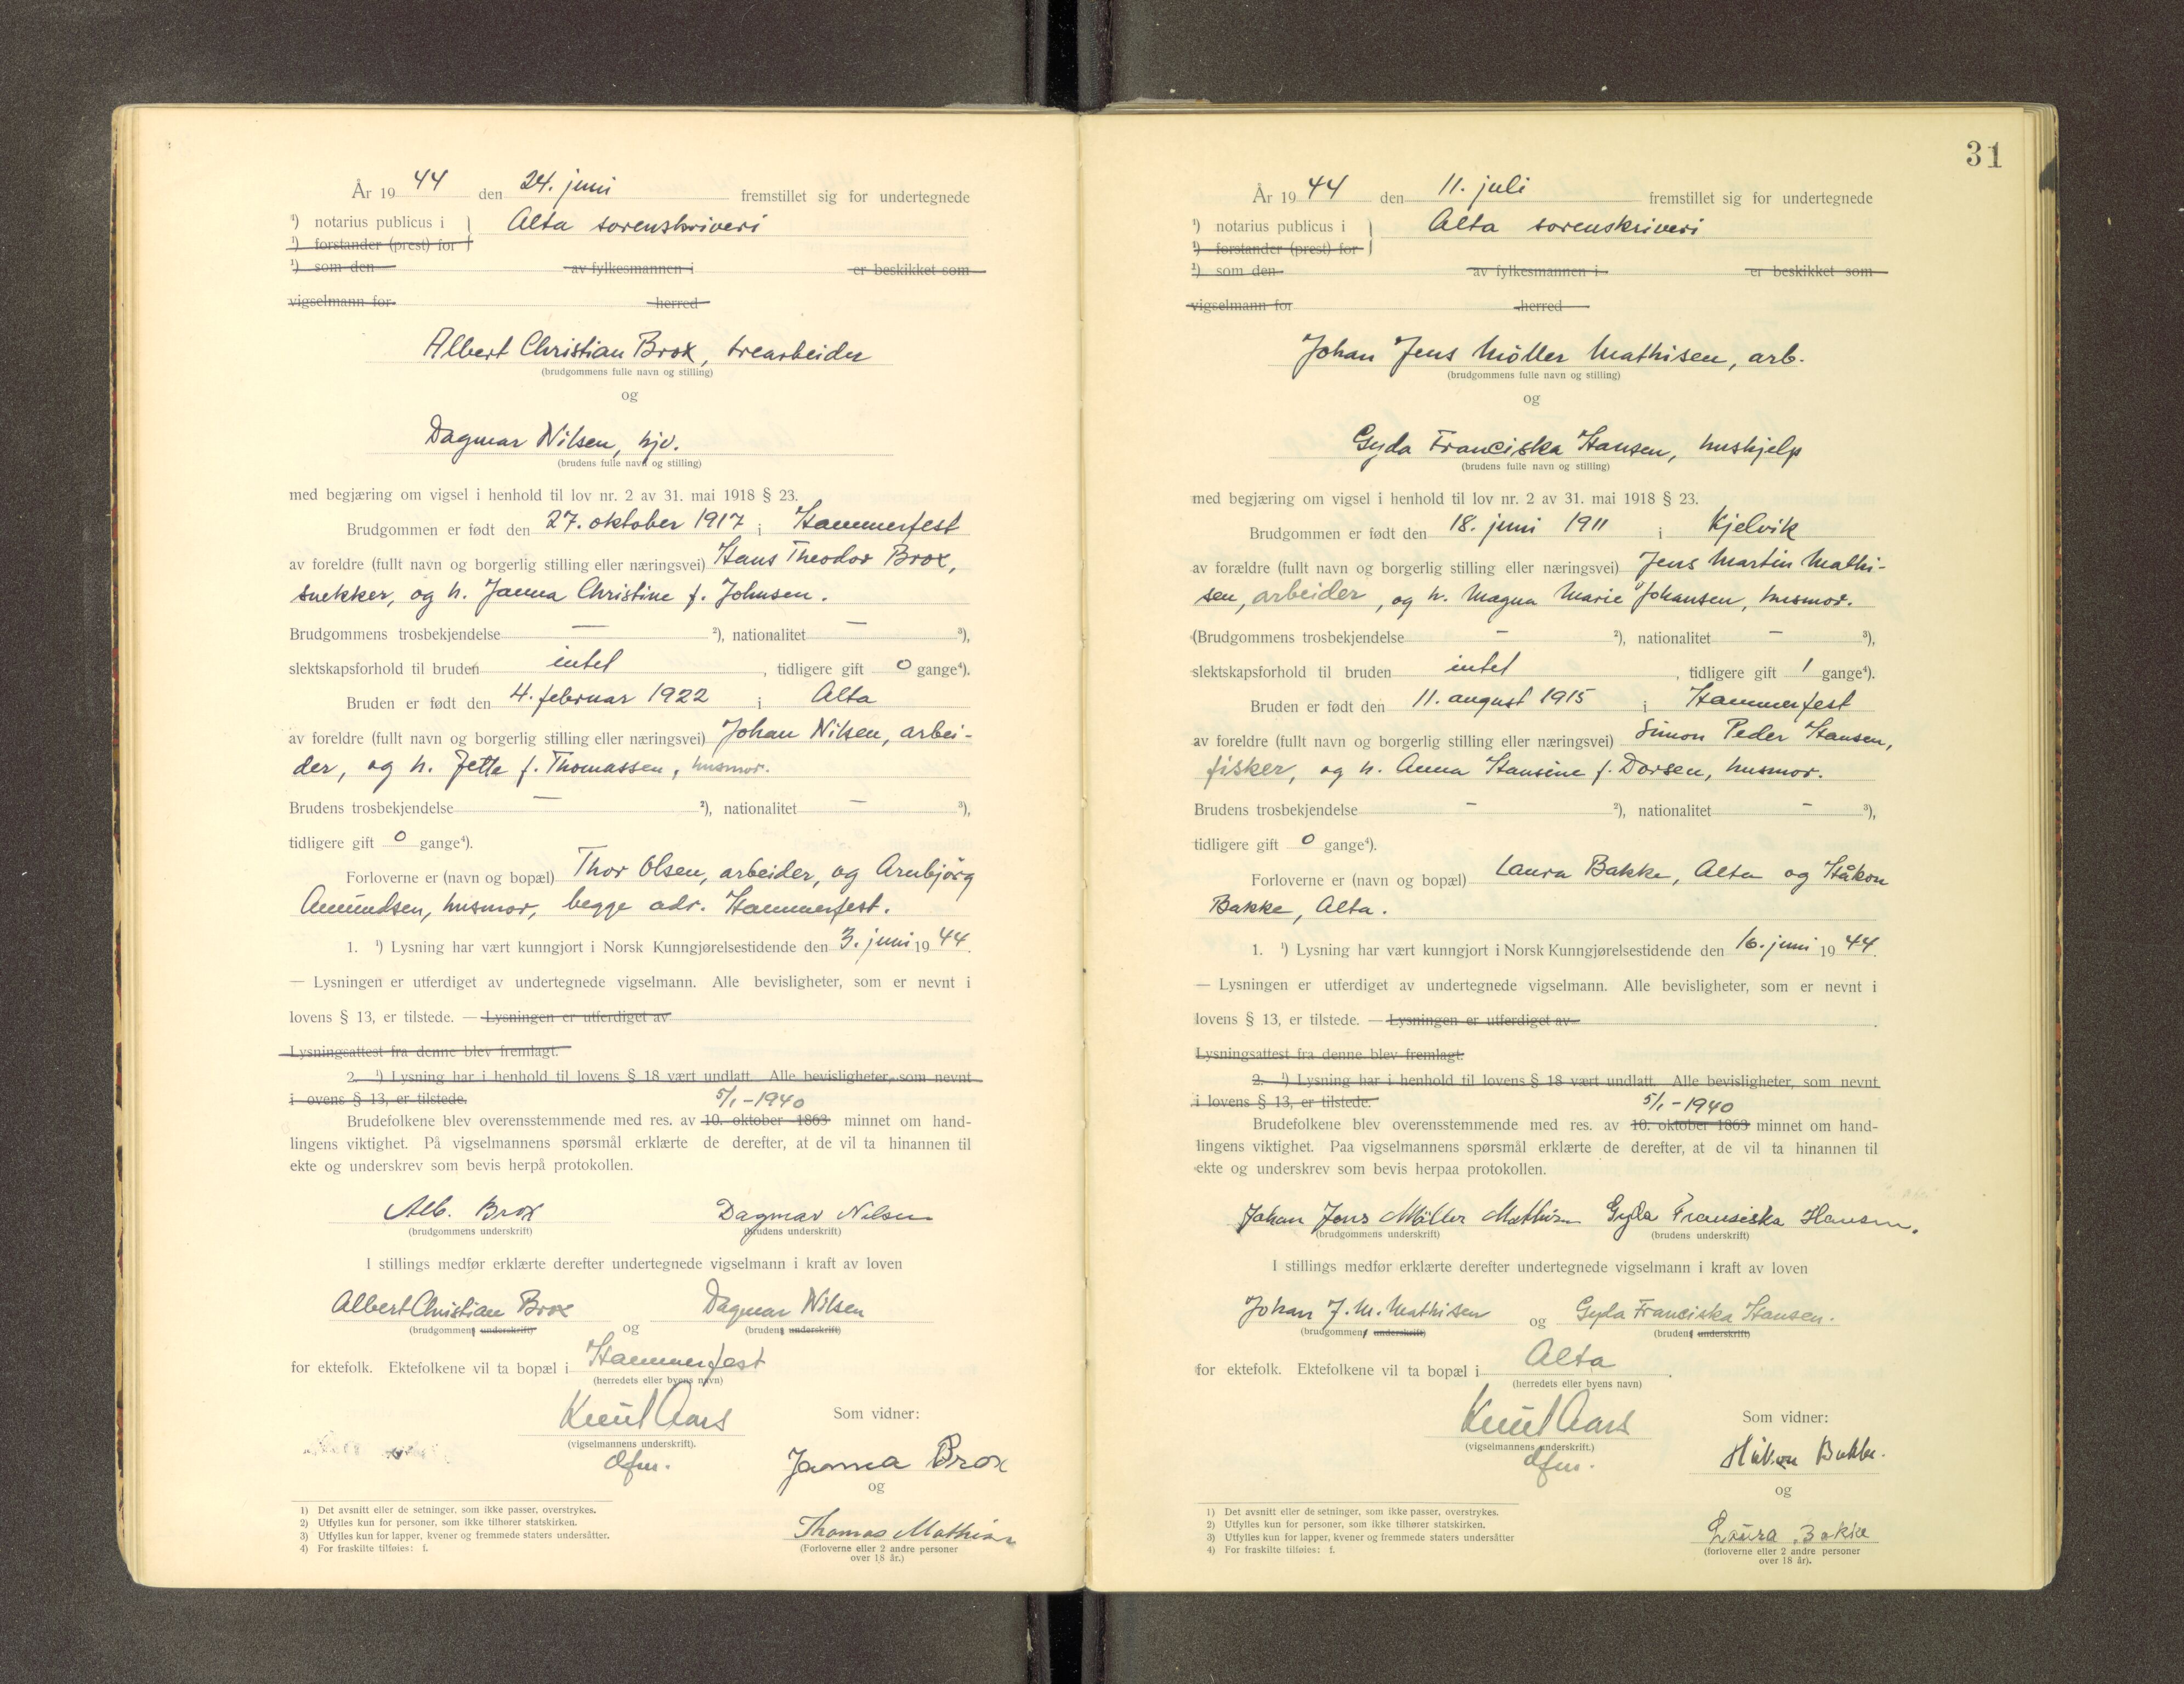 År 19 44 den 24. juni fremstillet sig for undertegnede
¹) notarius publicus i } Alta sorenskriveri
¹) forstander (prest) for
¹) som den av fylkesmannen i er beskikket som
vigselmann for herred
Albert Christian Brox, trearbeider
(brudgommens fulle navn og stilling)
og
Dagmar Nilsen, hjv.
(brudens fulle navn og stilling)
med begjæring om vigsel i henhold til lov nr. 2 av 31. mai 1918 § 23.
Brudgommen er født den 27. oktober 1917 i Hammerfest
av foreldre (fullt navn og borgerlig stilling eller næringsvei) Hans Theodor Brox,
snekker, og h. Janna Christine f. Johnsen.
Brudgommens trosbekjendelse — ²), nationalitet — ³),
slektskapsforhold til bruden intet, tidligere gift 0 gange⁴).
Bruden er født den 4. februar 1922 i Alta
av foreldre (fullt navn og borgerlig stilling eller næringsvei) Johan Nilsen, arbei-
der, og h. Jetta f. Thomassen, husmor.
Brudens trosbekjendelse — ²), nationalitet — ³),
tidligere gift 0 gange⁴).
Forloverne er (navn og bopæl) Thor Olsen, arbeider, og Arnbjörg
Amundsen, husmor, begge adr. Hammerfest.
1. ¹) Lysning har vært kunngjort i Norsk Kunngjørelsestidende den 3. juni 19 44.
— Lysningen er utferdiget av undertegnede vigselmann. Alle bevisligheter, som er nevnt i
lovens § 13, er tilstede. — Lysningen er utferdiget av
Lysningsattest fra denne blev fremlagt.
2. ¹) Lysning har i henhold til lovens § 18 vært undlatt. Alle bevisligheter, som nevnt
i ovens § 13, er tilstede. 5/1-1940
Brudefolkene blev overensstemmende med res. av 10. oktober 1863 minnet om hand-
lingens viktighet. På vigselmannens spørsmål erklærte de derefter, at de vil ta hinannen til
ekte og underskrev som bevis herpå protokollen.
Alb. Brox Dagmar Nilsen
(brudgommens underskrift) (brudens underskrift)
I stillings medfør erklærte derefter undertegnede vigselmann i kraft av loven
Albert Christian Brox og Dagmar Nilsen
(brudgommens underskrift) (brudens underskrift)
for ektefolk. Ektefolkene vil ta bopæl i Hammerfest
(herredets eller byens navn)
Knut Aars Som vidner:
(vigselmannens underskrift).
dfm. Janna Brox
og
Thomas Mathisen
(Forloverne eller 2 andre personer
over 18 år.)
1) Det avsnitt eller de setninger, som ikke passer, overstrykes.
2) Utfylles kun for personer, som ikke tilhører statskirken.
3) Utfylles kun for lapper, kvener og fremmede staters undersåtter.
4) For fraskilte tilføies: f.
31
År 19 44 den 11. juli fremstillet sig for undertegnede
¹) notarius publicus i } Alta sorenskriveri
¹) forstander (prest) for
¹) som den av fylkesmannen i er beskikket som
vigselmann for herred
Johan Jens Möller Mathisen, arb.
(brudgommens fulle navn og stilling)
og
Gyda Franciska Hansen, hushjelp
(brudens fulle navn og stilling)
med begjæring om vigsel i henhold til lov nr. 2 av 31. mai 1918 § 23.
Brudgommen er født den 18. juni 1911 i Kjelvik
av forældre (fullt navn og borgerlig stilling eller næringsvei) Jens Martin Mathi-
sen, arbeider, og h. Magna Marie Johansen, husmor.
(Brudgommens trosbekjendelse — ²), nationalitet — ³),
slektskapsforhold til bruden intet, tidligere gift 1 gange⁴).
Bruden er født den 11. august 1915 i Hammerfest
av foreldre (fullt navn og borgerlig stilling eller næringsvei) Simon Peder Hansen,
fisker, og h. Anna Hansine f. Dorsen, husmor.
Brudens trosbekjendelse — ²), nationalitet — ³),
tidligere gift 0 gange⁴).
Forloverne er (navn og bopæl) Laura Bakke, Alta og Håkon
Bakke, Alta.
1. ¹) Lysning har vært kunngjort i Norsk Kunngjørelsestidende den 16. juni 19 44.
— Lysningen er utferdiget av undertegnede vigselmann. Alle bevisligheter, som er nevnt i
lovens § 13, er tilstede. — Lysningen er utferdiget av
Lysningsattest fra denne blev fremlagt.
2. ¹) Lysning har i henhold til lovens § 18 vært undlatt. Alle bevisligheter, som nevnt
i lovens § 13, er tilstede. 5/1-1940
Brudefolkene blev overensstemmende med res. av 10. oktober 1863 minnet om hand-
lingens viktighet. Paa vigselmannens spørsmål erklærte de derefter, at de vil ta hinannen til
ekte og underskrev som bevis herpaa protokollen.
Johan Jens Möller Mathisen Gyda Franseska Hansen.
(brudgommens underskrift) (brudens underskrift)
I stillings medfør erklærte derefter undertegnede vigselmann i kraft av loven
Johan J. M. Mathisen og Gyda Franciska Hansen.
(brudgommens underskrift) (brudens underskrift)
for ektefolk. Ektefolkene vil ta bopæl i Alta.
(herredets eller byens navn)
Knut Aars Som vidner:
(vigselmannens underskrift.)
dfm. Håkon Bakke.
og
Laura Bakke
(forloverne eller 2 andre personer
over 18 år).
1) Det avsnitt eller de setninger, som ikke passer, overstrykes.
2) Utfylles kun for personer, som ikke tilhører statskirken.
3) Utfylles kun for lapper, kvener og fremmede staters undersåtter
4) For fraskilte tilføies: f.